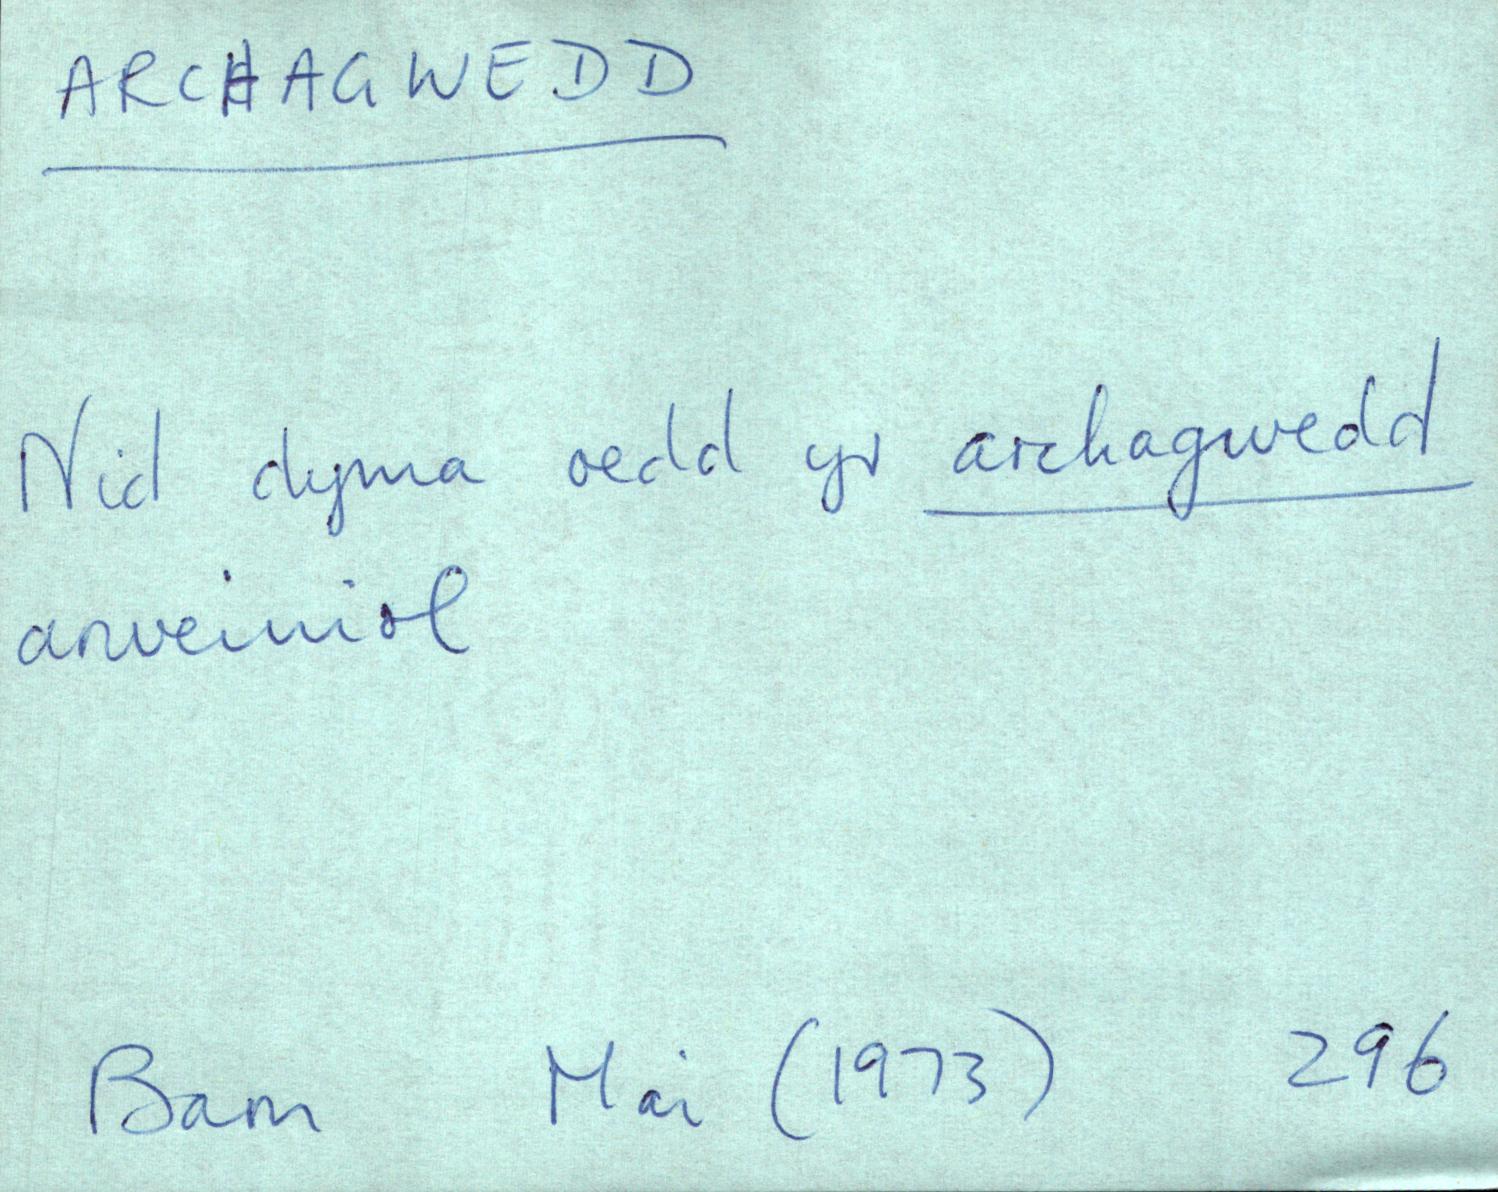 ARCHAGWEDD
Nid dyma oedd yr archagwedd
arweiniol
Barn Mai (1973) 296